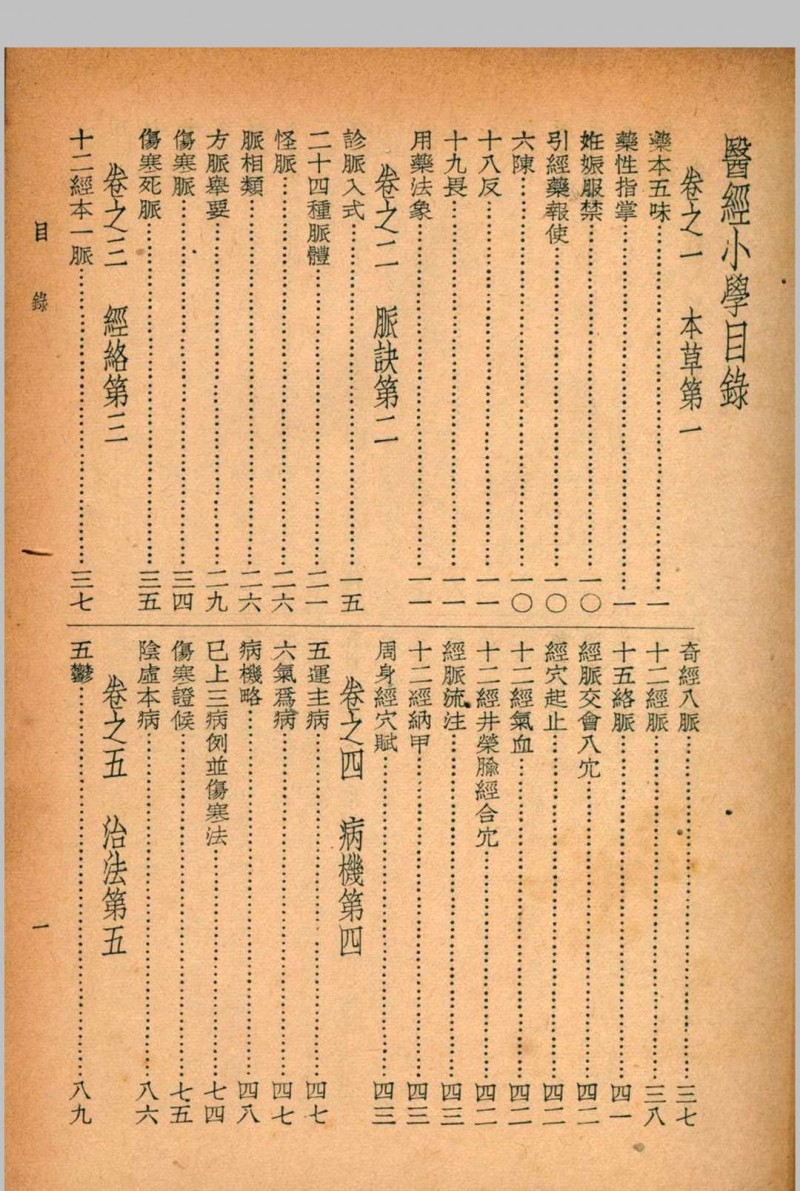 醫經小學目錄
卷之一 本草第一
藥本五味……一
藥性指掌……一
妊娠服禁……一〇
引經藥報使……一〇
六陳……一〇
十八反……一一
十九畏……一一
用藥法象……一一
卷之二 脈訣第二
診脈入式……一五
二十四種脈體……二一
怪脈……二六
脈相類……二六
方脈舉要……二九
傷寒脈……三四
傷寒死脈……三五
卷之三 經絡第三
十二經本一脈……三七
奇經八脈……三七
十二經脈……三八
十五絡脈……四一
經脈交會八穴……四二
經穴起止……四二
十二經氣血……四二
十二經井榮腧經合穴……四二
經脈流注……四三
十二經納甲……四三
周身經穴賦……四三
卷之四 病機第四
五運主病……四七
六氣爲病……四七
病機略……四八
已上三病例並傷寒法……七四
傷寒證候……七五
陰虛本病……八六
卷之五 治法第五
五鬱……八九
目錄
一